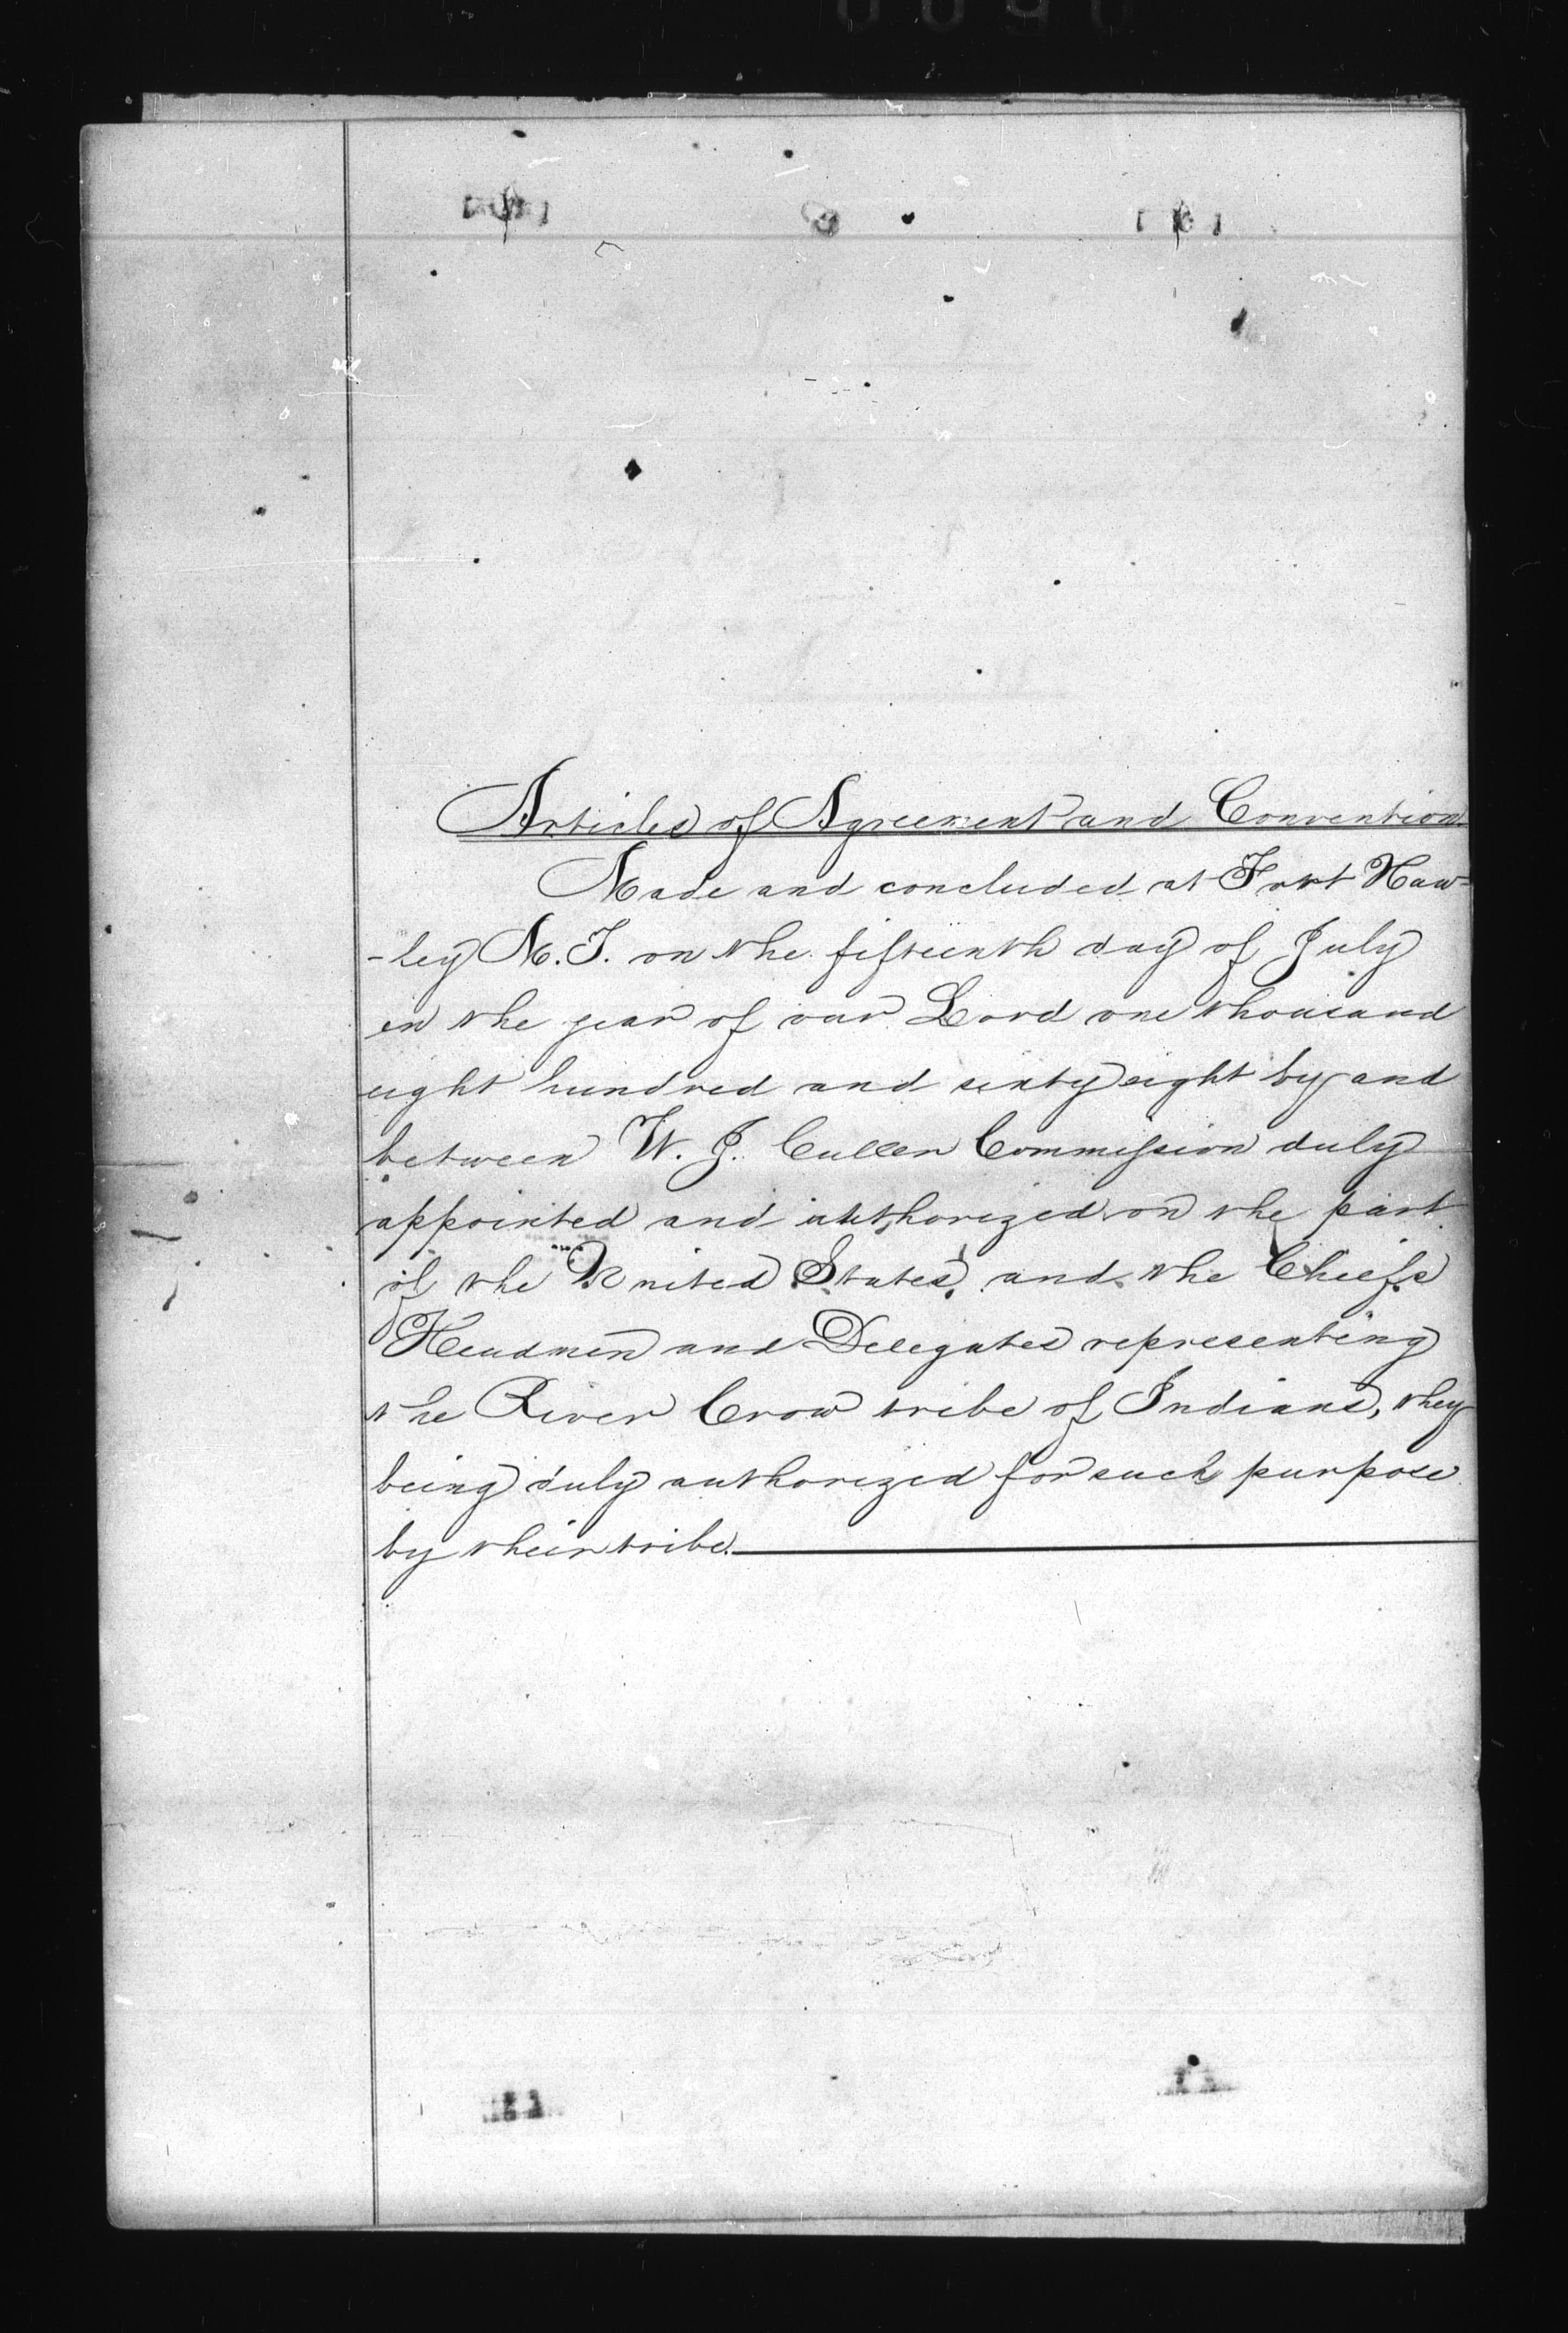 Articles of Agreement and Convention
Made and concluded at Fort Haw-
-ley M.T. on the fifteenth day of July
in the year of our Lord one thousand
eight hundred and sixty eight by and
between W. J. Cullen Commission duly
appointed and authorized on the part
of the United States, and the Chiefs
Headmen and Delegates representing
the River Crow tribe of Indians, they
being duly authorized for such purpose
by their tribe.